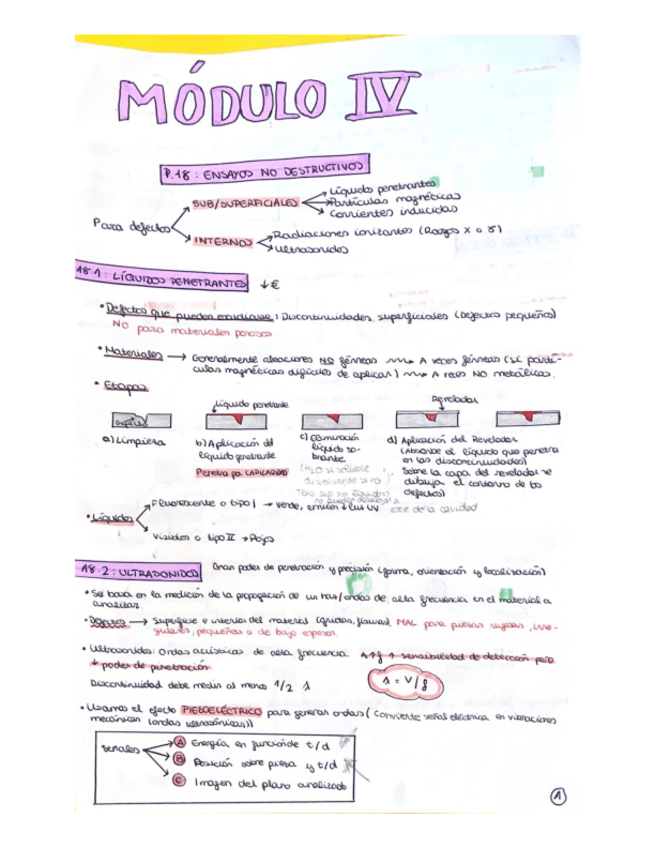 MÓDULO IV
P.18: ENSAYOS NO DESTRUCTIVOS
Para defectos
SUB/SUPERFICIALES
Líquido penetrantes
Partículas magnéticas
Corrientes inducidas
INTERNOS
Radiaciones ionizantes (Rayos X o γ)
Ultrasonidos
18.1: LÍQUIDOS PENETRANTES ↓€
• Defectos que pueden estudiarse: Discontinuidades superficiales (defectos pequeños)
NO para materiales porosos
• Materiales → Generalmente aleaciones NO férreas A veces férreas (si partí-
culas magnéticas difíciles de aplicar) A veces NO metálicas.
• Etapas
Líquido penetrante
Revelador
a) Limpieza
b) Aplicación del
líquido penetrante
Penetra por CAPILARIDAD
c) Eliminación
líquido so-
brante
(H₂O si soluble
disolvente si no)
d) Aplicación del Revelador
(Absorbe el líquido que penetra
en las discontinuidades)
Sobre la capa del revelador se
dibuja el contorno de los
defectos)
• Líquidos
Fluorescente o tipo I → verde, emiten ↓ luz UV
Visibles o tipo II → Rojos
18.2: ULTRASONIDOS
Gran poder de penetración y precisión (forma, orientación y localización)
• Se basa en la medición de la propagación de un haz/ondas de alta frecuencia en el material a
analizar
• Defectos → Superficie e interior del material (grietas, fisuras) MAL para piezas rugosas, irre-
gulares, pequeñas o de bajo espesor.
• Ultrasonidos: Ondas acústicas de alta frecuencia. ↑↑f ↑ sensibilidad de detección pero
↓ poder de penetración
Discontinuidad debe medir al menos 1/2 λ
λ = V/f
• Usamos el efecto PIEZOELÉCTRICO para generar ondas (convierte señal eléctrica en vibraciones
mecánicas (ondas ultrasónicas))
Señales
A Energía en función de t/d
B Posición sobre pieza y t/d
C Imagen del plano analizado
1